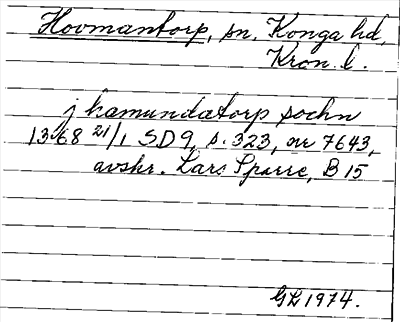 Hovmantorp, sn. Konga hd,
Kron. l.
j hamundatorp sochn
1368 21/1 SD 9, s. 323, nr 7643,
avskr. Lars Sparre, B 15
GL 1974.